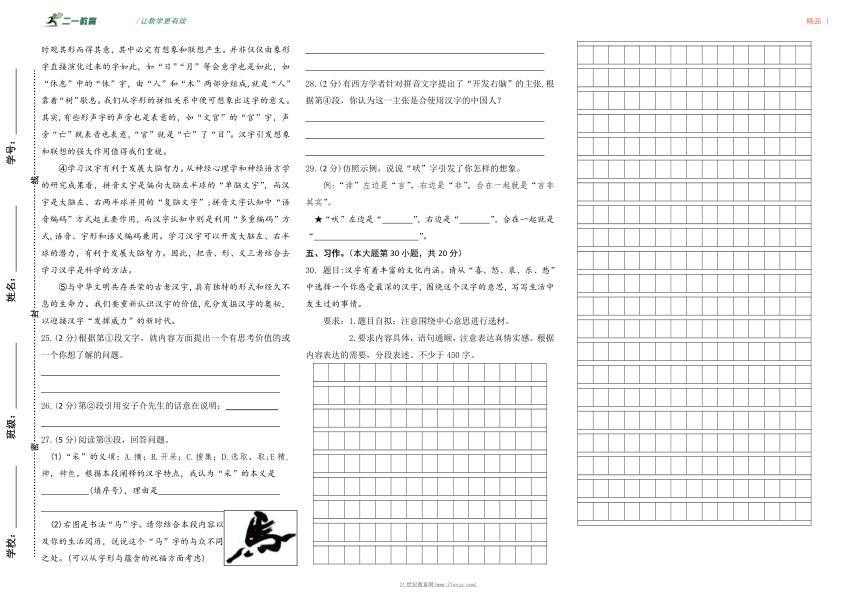 二一教育 /让教学更有效
精品 |
学号：
姓名：
班级：
学校：
线
封
密
时观其形而得其意，其中必定有想象和联想产生。并非仅仅由象形
字直接演化过来的字如此，如“日”“月”等会意字也是如此，如
“休息”中的“休”字，由“人”和“木”两部分组成，就是“人”
靠着“树”歇息。我们从字形的拼组关系中便可想象出这字的意义。
其实，有些形声字的声旁也是表意的，如“文盲”的“盲”字，声
旁“亡”既表音也表意，“盲”就是“亡”了“目”。汉字引发想象
和联想的强大作用值得我们重视。
④学习汉字有利于发展大脑智力。从神经心理学和神经语言学
的研究成果看，拼音文字是偏向大脑左半球的“单脑文字”，而汉
字是大脑左、右两半球并用的“复脑文字”；拼音文字认知中“语
音编码”方式起主要作用，而汉字认知中则是利用“多重编码”方
式，语音、字形和语义编码兼用。学习汉字可以开发大脑左、右半
球的潜力，有利于发展大脑智力。因此，把音、形、义三者结合去
学习汉字是科学的方法。
⑤与中华文明共存共荣的古老汉字，具有独特的形式和经久不
息的生命力。我们要重新认识汉字的价值，充分发掘汉字的奥秘，
以迎接汉字“发挥威力”的新时代。
25.(2分)根据第①段文字，就内容方面提出一个有思考价值的或
一个你想了解的问题。
26.(2分)第②段引用安子介先生的话意在说明：
27.(5分)阅读第③段，回答问题。
(1)“采”的义项：A.摘；B.开采；C.搜集；D.选取，取；E精.
神，神色。根据本段阐释的汉字特点，我认为“采”的本义是
(填序号)，理由是
(2)右图是书法“马”字。请你结合本段内容以
及你的生活阅历，说说这个“马”字的与众不同
之处。(可以从字形与蕴含的祝福方面考虑)
28.(2分)有西方学者针对拼音文字提出了“开发右脑”的主张，根
据第④段，你认为这一主张是合使用汉字的中国人？
29.(2分)仿照示例，说说“吠”字引发了你怎样的想象。
例：“诽”左边是“言”，右边是“非”，合在一起就是“言非
其实”。
★“吠”左边是“_______”，右边是“_______”，合在一起就是
“_______________________”。
五、习作。（本大题第30小题，共20分）
30. 题目:汉字有着丰富的文化内涵。请从“喜、怒、哀、乐、愁”
中选择一个你感受最深的汉字，围绕这个汉字的意思，写写生活中
发生过的事情。
要求：1.题目自拟；注意围绕中心意思进行选材。
2.要求内容具体，语句通顺，注意表达真情实感。根据
内容表达的需要，分段表述。不少于450字。
21世纪教育网(www.21cnjy.com)